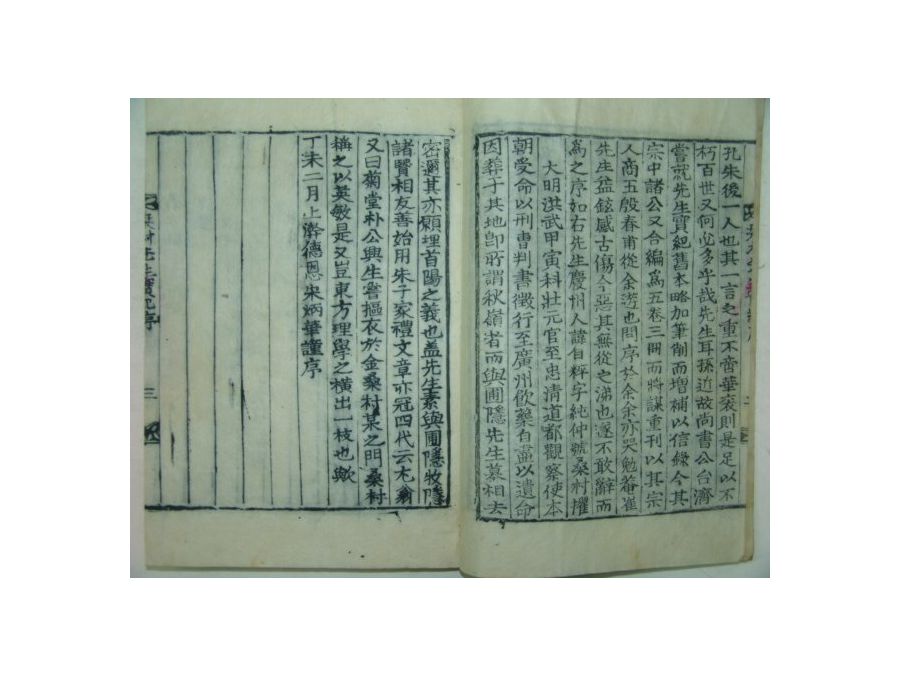 孔朱後一人也其一言之重不啻華袞則是足以不
朽百世又何必多乎哉先生耳孫近故尚書公台濟
嘗就先生實紀舊本略加筆削而增補以信錄今其
宗中諸公又合編爲五卷三冊而將謀重刊以其宗
人商五殷春甫從余遊也問序於余余亦哭勉菴崔
先生益鉉感古傷今惡其無從之涕也遂不敢辭而
爲之序如右先生慶州人諱自粹字純仲號桑村擢
大明洪武甲寅科壯元官至忠淸道都觀察使本
朝受命以刑曹判書徵行至廣州飮藥自盡以遺命
因葬于其地卽所謂秋嶺者而與圃隱先生墓相去
密邇其亦願埋首陽之義也盖先生素與圃隱牧隱
諸賢相友善始用朱子家禮文章亦冠四代云尤翁
又曰菊堂朴公興生嘗摳衣於金桑村某之門桑村
稱之以英敏是又豈東方理學之橫出一枝也歟
丁未二月上澣德恩宋炳華謹序
桑村先生實紀序
三